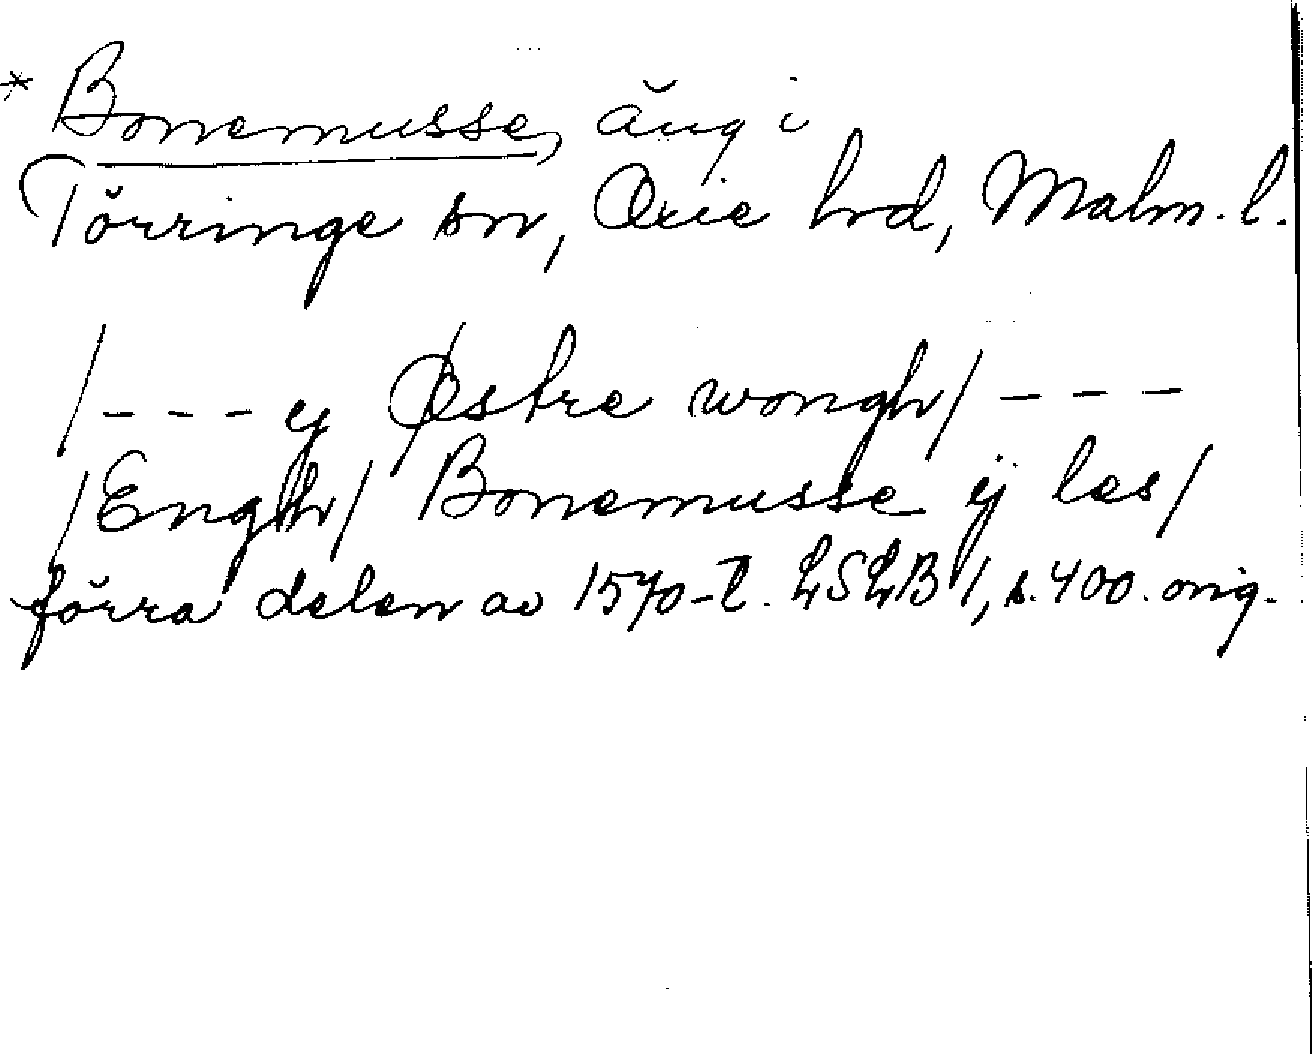 * Bonemusse, äng i
Törringe sn, Oxie hrd, Malm. l.
/- - - y Østre wongh/ - - -
/Engh/ Bonemusse ij les/
förra delen av 1570-t. LSLB 1, s. 400. orig.